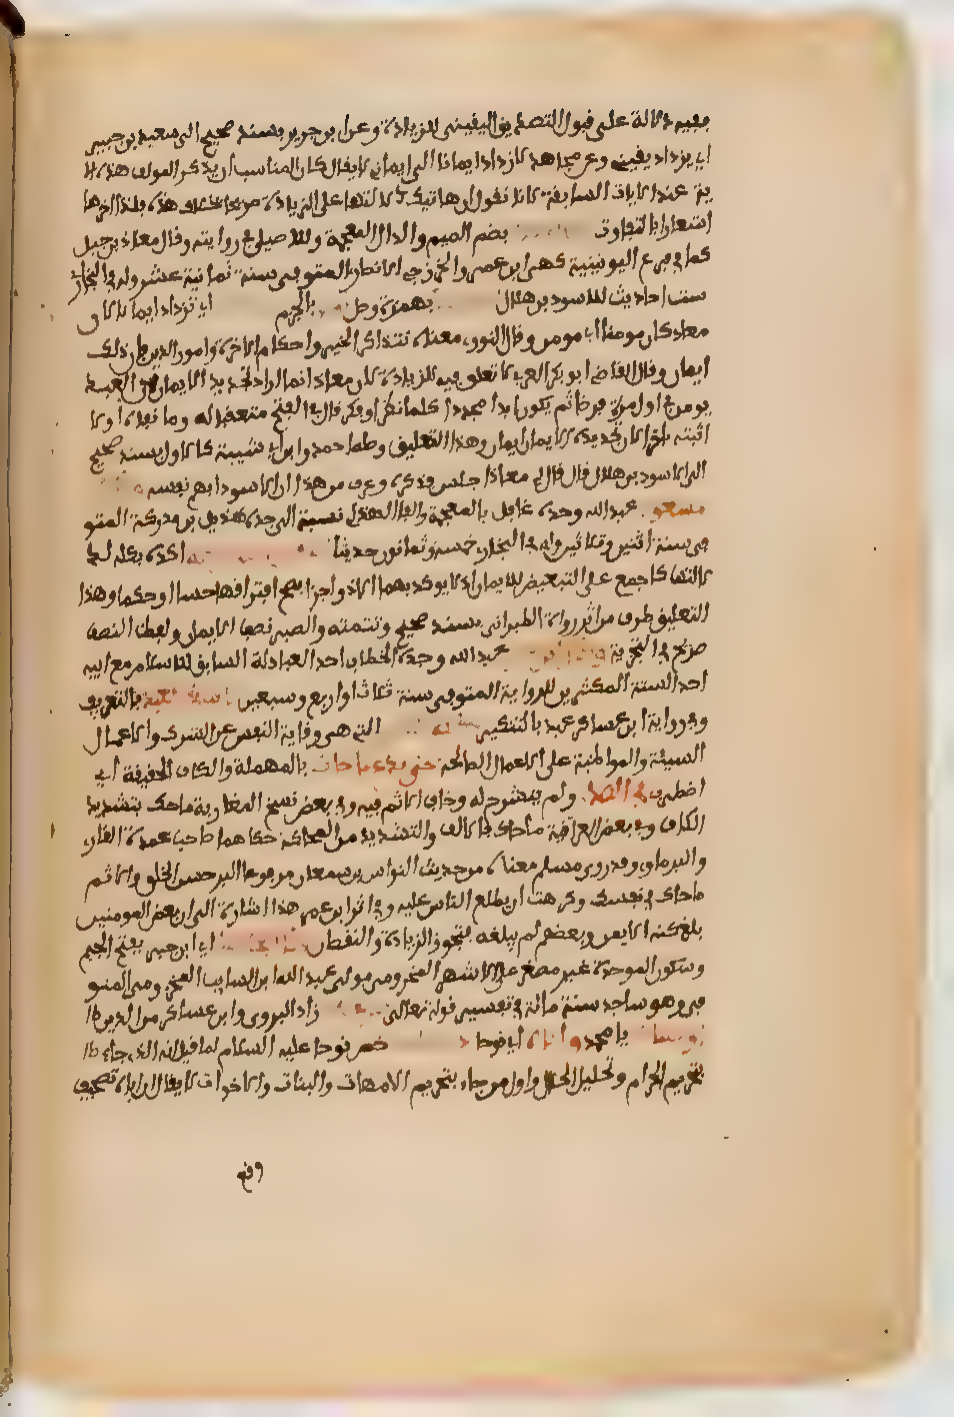 ففيه دلالة على قبول التصديق اليقيني للزيادة وعن ابن جرير بسند صحيح الى سعيد بن جبير
اي يزداد يقيني وعن مجاهد لازداد ايمانا الى ايماني لا يقال كان المناسب ان يذكر المولف هذه الا
ية عند الايات السابقة لانا نقول ان هاتيك دلالتها على الزيادة صريحة بخلاف هذه فلذا اخرها
اشعارا بالتفاوت بضم الميم والذال المعجمة وللاصيلي في روايته وقال معاذ بن جبل
كما في فرع اليونينية كهي ابن عمرو الخزرجي الانصاري المتوفى سنة ثمانية عشر وله في البخاري
ست احاديث للاسود بن هلال بهمزة وصل بالجزم اي نزداد ايمانا لان
معاذا كان مومنا اي مومن وقال النووي معناه نتذاكر الخير واحكام الاخرة وامور الدين فان ذلك
ايمان وقال القاضي ابو بكر بن العربي لا تعلق فيه للزيادة لان معاذا انما اراد تجديد الايمان لان العبد
يومن في اول مرة فرضا ثم يكون ابدا مجددا كلما نظر او فكر قال في الفتح متعقبا له وما نفاه اولا
اثبته اخرا لان تجديد الايمان ايمان وهذا التعليق وصله احمد وابن ابي شيبة كالاول بسند صحيح
الى الاسود بن هلال قال قال لي معاذ اجلس فذكره وعرف من هذا ان الاسود ابهم نفسه
مسعود عبد الله وجده غافل بالمعجمة والفا الهذلي نسبة الى جده هذيل بن مدركة المتو
فى سنة اثنين وثلاثين وله في البخاري خمسة وثمانون حديثا اكده بكله لد
لالتها كاجمع على التبعيض للايمان اذ لا يوكد بهما الا ذو اجزا يصح افتراقها حسا او حكما وهذا
التعليق طرف من اثر رواه الطبراني بسند صحيح وتتمته والصبر نصف الايمان ولفظ النصف
صريح في التجزية عبد الله وجده الخطاب احد العبادلة السابق للاسلام مع ابيه
احد الستة المكثرين للرواية المتوفى سنة ثلاث او اربع وسبعين بالتعريف
وفي رواية ابن عساكر عبد بالتنكير التي هي وقاية النفس عن الشرك والاعمال
السيئة والمواظبة على الاعمال الصالحة حتى يدع ما حاك بالمهملة والكاف الخفيفة اي
اضطرب في الصدر ولم ينشرح له وخاف الاثم فيه وفي بعض نسخ المغاربة ماحك بتشديد
الكاف وفي بعض العراقية ماحاك بالالف والتشديد من المحاكة حكاهما صاحب عمدة القاري
والبرماوي وقد روى مسلم معناه من حديث النواس بن سمعان مرفوعا البر حسن الخلق والاثم
ماحاك في نفسك وكرهت ان يطلع الناس عليه وفي اثر ابن عمر هذا اشارة الى ان بعض المومنين
بلغ كنه الايمن وبعضهم لم يبلغه فتجوز الزيادة والنقصان اي ابن جبر بفتح الجيم
وسكون الموحدة غير مصغر على الاشهر المخزومي مولى عبد الله بن السايب المخزومي المتو
فى وهو ساجد سنة مائة في تفسير قوله تعالى زاد الهروي وابن عساكر من الدين
يا محمد واياه اي نوحا خص نوحا عليه السلام لما قيل انه الذي جاء
بتحريم الحرام وتحليل الحلال واول من جاء بتحريم الامهات والبنات والاخوات لا يقال ان اياه تصحيف
وقع